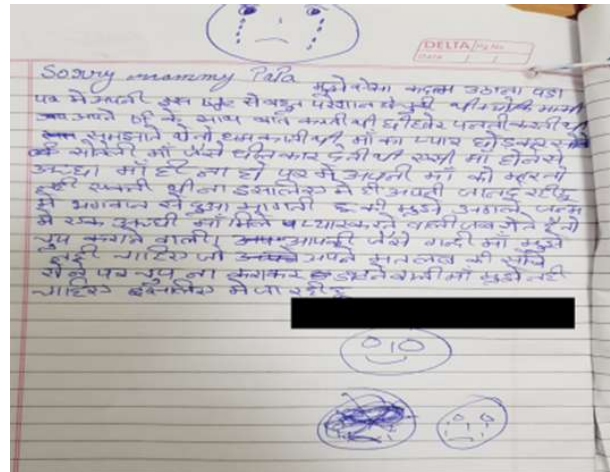 DELTA Pg No.
Date / /
Sorry mommy Papa मुझे ऐसा कदम उठाना पडा
पर मे अपनी इस से बहुत परेशान हो चुकी थी
अपने bf के साथ बात करती थी करती थी
समझाने पे तो धमकाती थी माँ का प्यार छोडकर
सोतेली माँ जैसे धीतकार देती थी एसी माँ होने से
अच्छा माँ ही ना हो पर मे अपनी माँ को मार तो
नही सकती थी ना इसलिए मे ही अपनी जान दे रही हू
मे भगवान से दुआ मांगती हू की मुझे अगले जन्म
मे एक अच्छी माँ मिले प्यार करने वाली जब रोते है तो
चुप कराने वाली। आपकी जैसे गन्दी माँ मुझे
नही चाहिए जो अपने मतलब की सोचे
रोने पर चुप ना कराकर वाली माँ मुझे नही
चाहिए इसलिए मे जा रही हू